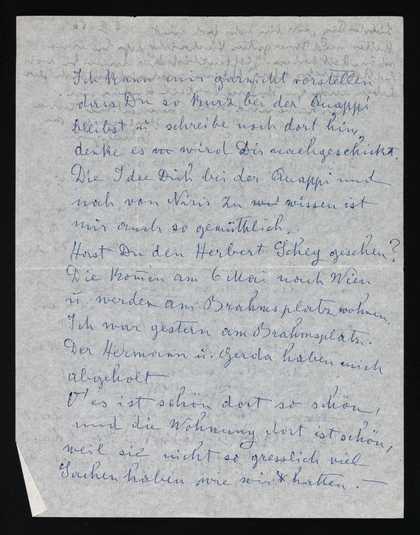 Ich kann mir garnicht vorstellen
dass Du so kurz bei der Quappi
bleibst u schreibe noch dort hin,
denke es wird Dir nachgeschickt.
Die Idee Dich bei der Quappi und
noch von Nixis zu wissen ist
mir auch so gemüthlich.
Hast Du den Herbert Schey gesehen?
Die kom̅en am 6 Mai nach Wien
u̅ werden am Brahmsplatz wohnen.
Ich war gestern am Brahmsplatz.
Der Hermann u. Gerda haben mich
abgeholt
es ist schön dort so schön,
und die Wohnung dort ist schön,
weil sie nicht so gresslich viel
Sachen haben wie wir hatten. —